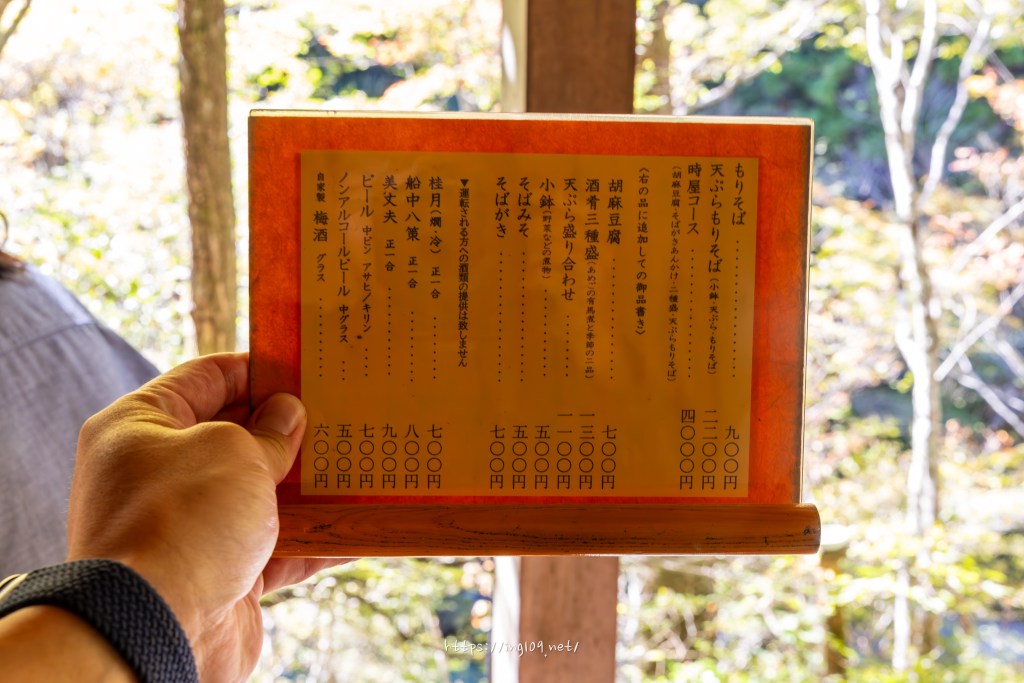 もりそば ・・・・・・・・・ 九〇〇円
天ぷらもりそば（小鉢・天ぷら・もりそば） 二二〇〇円
時屋コース ・・・・・・・・・ 四〇〇〇円
（胡麻豆腐・そばがきあんかけ・二種盛・天ぷらもりそば）
（右の品に追加しての御品書き）
胡麻豆腐 ・・・・・・・・・ 七〇〇円
酒肴三種盛（あめごの有馬煮と季節の二品） 一三〇〇円
天ぷら盛り合わせ ・・・・・・ 一一〇〇円
小鉢（野菜などの煮物）・・・・・・ 五〇〇円
そばみそ ・・・・・・・・・ 五〇〇円
そばがき ・・・・・・・・・ 七〇〇円
▼運転される方への酒類の提供は致しません
桂月（燗 冷） 正一合 ・・・・・・ 七〇〇円
船中八策 正一合 ・・・・・・ 八〇〇円
美丈夫 正一合 ・・・・・・ 九〇〇円
ビール 中ビン アサヒ/キリン ・・・ 七〇〇円
ノンアルコールビール 中グラス ・・ 五〇〇円
自家製 梅酒 グラス ・・・・・・ 六〇〇円
https://ing109.net/